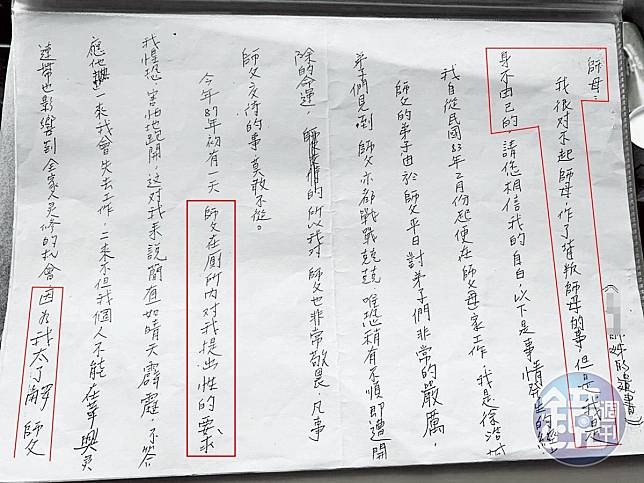 師姊的遺書)
師母:
我很对不起師母,作了背叛師母的事,但是我是
身不由己的,請您相信我的自白,以下是事情發生的經
我自從民國83年2月份起便在師父母家工作,我是徐浩城
師父的弟子由於師父平日對弟子們非常的嚴厲,
弟子們見到師父亦都戰戰兢兢唯恐稍有不順即遭開
除的命運,的所以我对師父也非常敬畏,凡事
師父交待的事莫敢不從。
今年87年初有一天師父在廁所內对我提出性的要求
我惶恐、害怕地跑開,这对我来說簡直有如晴天霹靂,不答
應他一來我會失去工作,二來不但我個人不能在華興靈
連帶也影響到全家人灵修的机會因为我太了解師父
鏡週刊